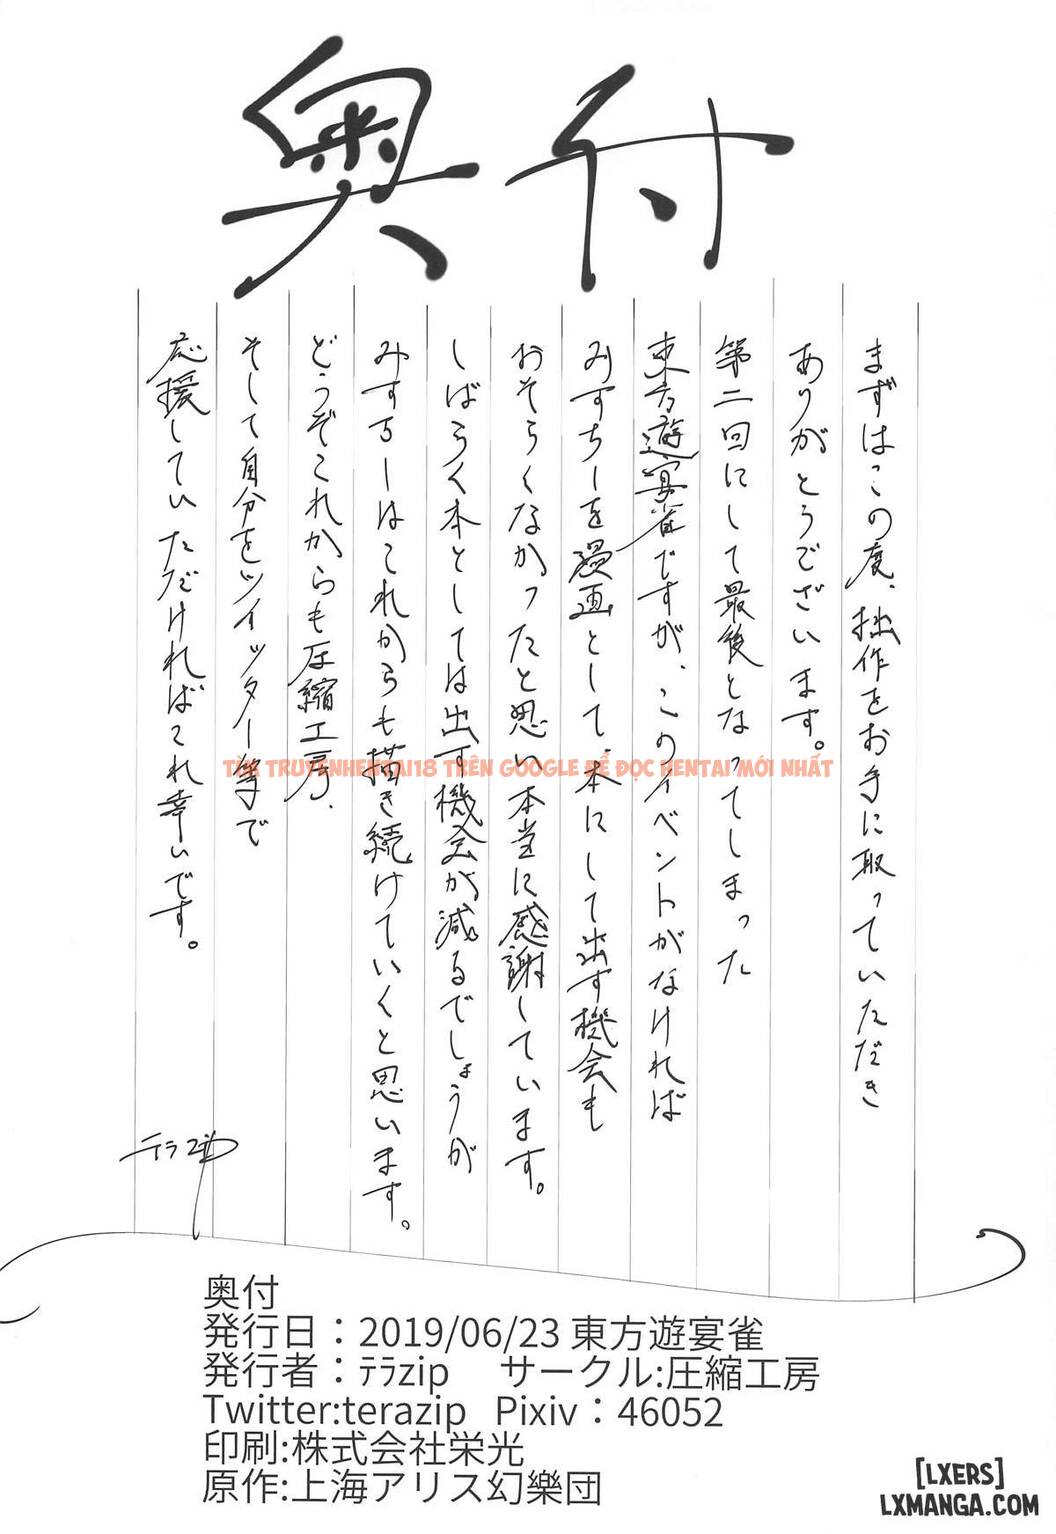 奥付
まずはこの度、拙作をお手に取っていただき
ありがとうございます。
第二回にして最後となってしまった
東方遊宴雀ですが、このイベントがなければ
みすちーを漫画として、本にして出す機会も
おそらくなかったと思い本当に感謝しています。
しばらく本としては出す機会が減るでしょうが
みすちーはこれからも描き続けていくと思います。
どうぞこれからも圧縮工房、
そして自分をツイッター等で
応援していただければこれ幸いです。
テラzip
TÌM TRUYENHENTAI18 TRÊN GOOGLE ĐỂ ĐỌC HENTAI MỚI NHẤT
奥付
発行日：2019/06/23 東方遊宴雀
発行者：ﾃﾗzip サークル:圧縮工房
Twitter:terazip Pixiv：46052
印刷:株式会社栄光
原作:上海アリス幻樂団
[LXERS]
LXMANGA.COM